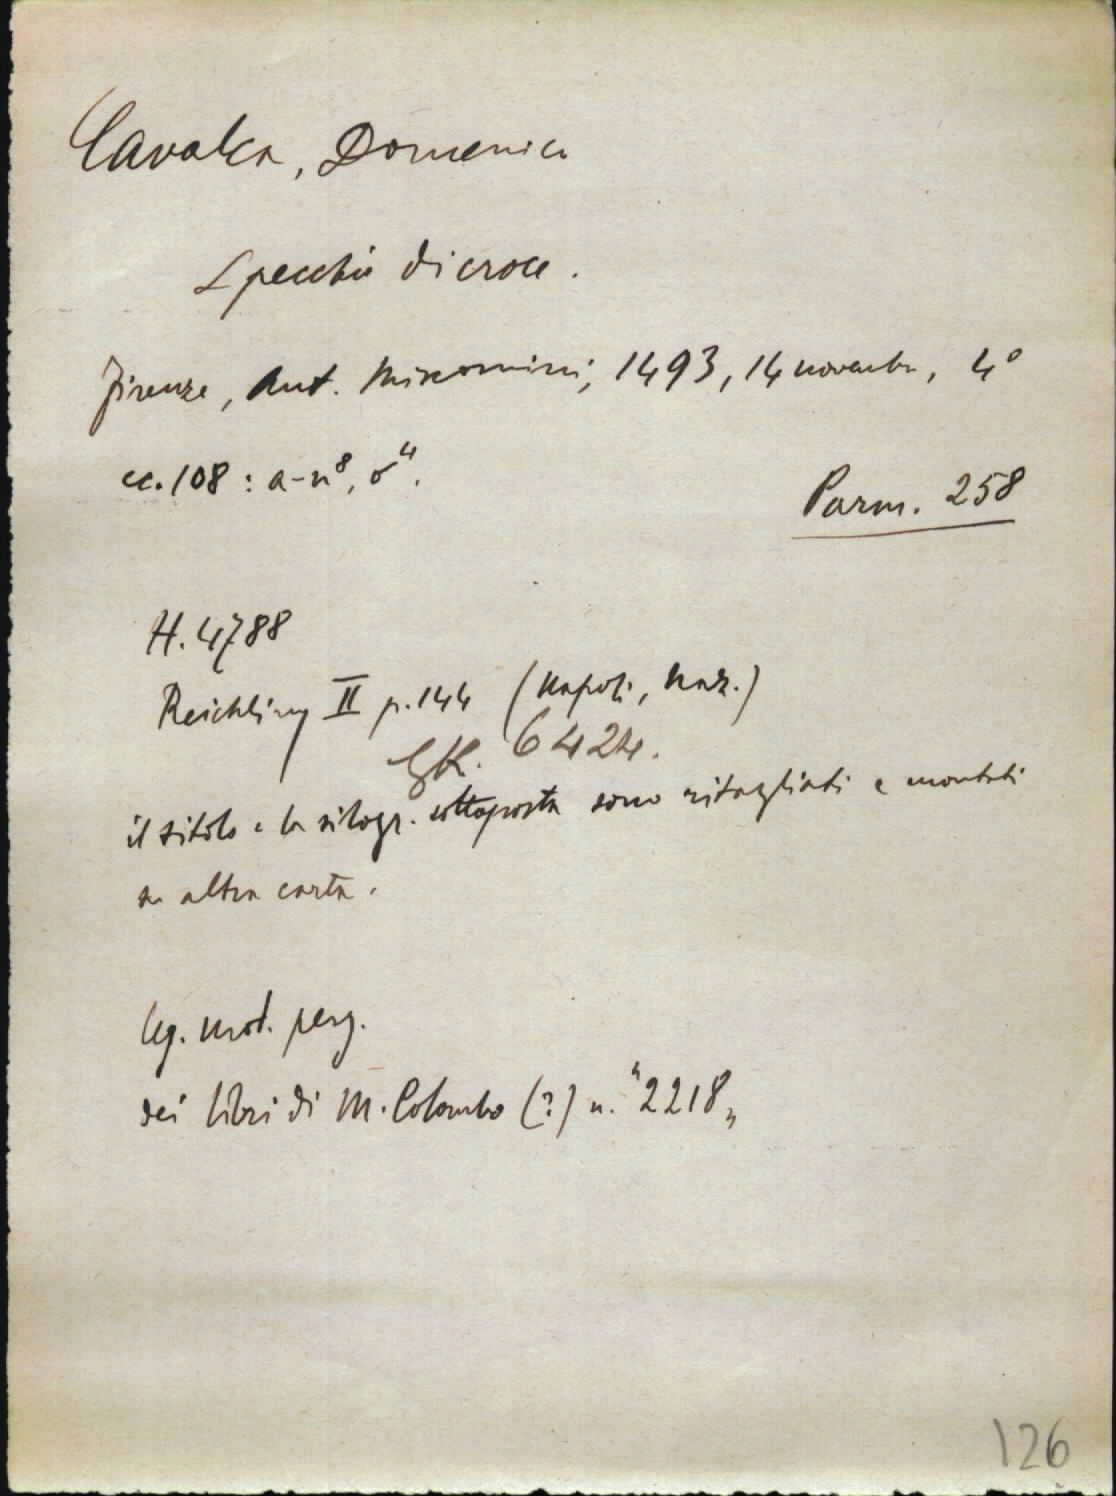 Cavalca, Domenico
Specchio di croce.
Firenze, Ant. Miscomini, 1493, 14 novembre, 4°
cc. 108 : a-n⁸, o⁴.
Parm. 258
H. 4788
Reichling II p. 144 (Napoli, Naz.)
GK. 6424.
il titolo e la silogr. sottoposta sono ritagliati e montati
su altra carta.
leg. mod. perg.
dei libri di M. Colombo (?) n. "2218„
126